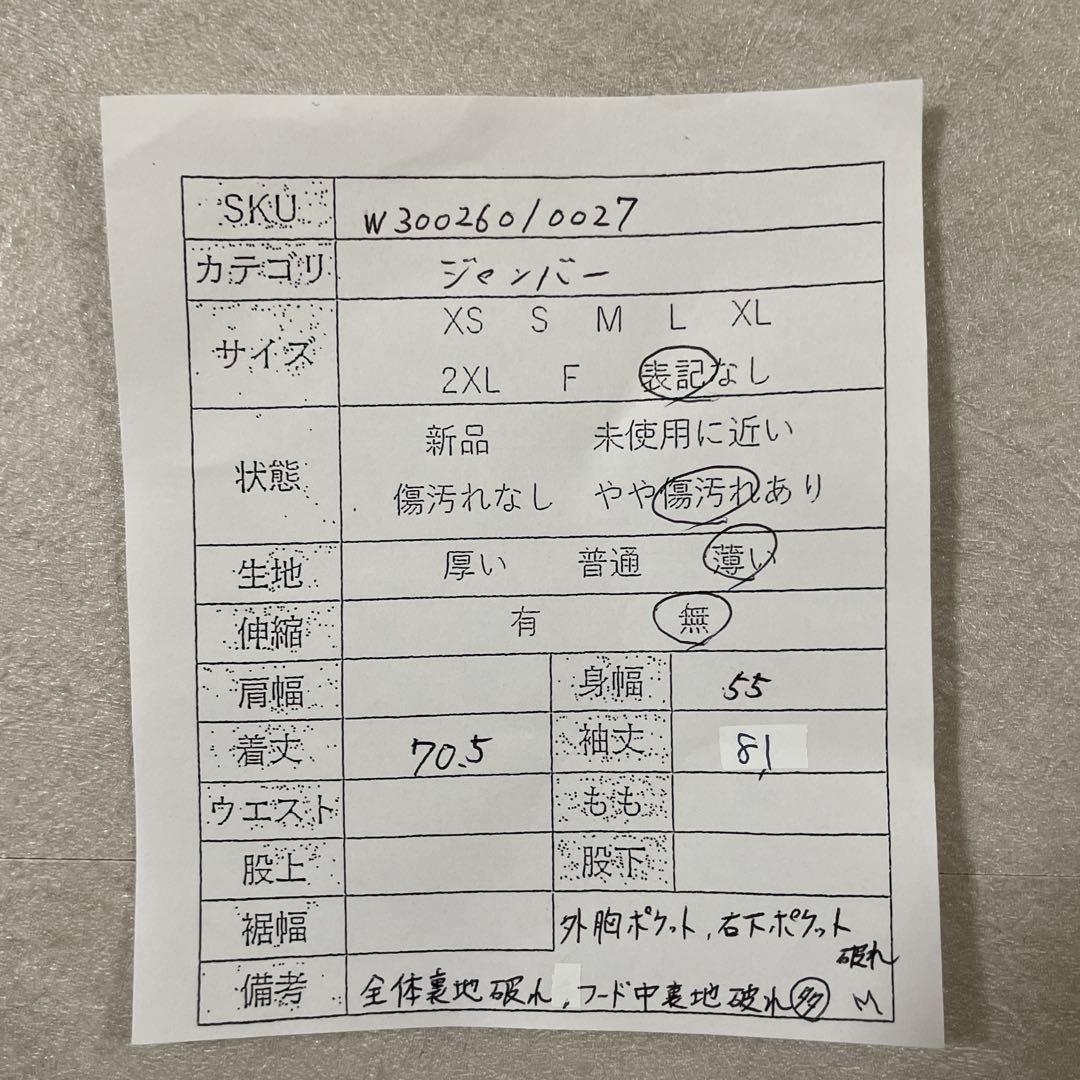 SKU W30026010027
カテゴリ ジャンバー
サイズ XS S M L XL
2XL F 表記なし
状態 新品 未使用に近い
傷汚れなし やや傷汚れあり
生地 厚い 普通 薄い
伸縮 有 無
肩幅 身幅 55
着丈 70.5 袖丈 81
ウエスト もも
股上 股下
裾幅 外胸ポケット,右下ポケット
破れ
備考 全体裏地破れ,フード中裏地破れ 多 M